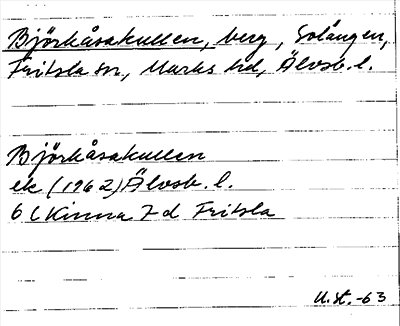 Björkåsakullen, berg, Solängen,
Fritsla sn, Marks hd, Älvsb. l.
Björkåsakullen
ek (1962) Älvsb. l.
6 C Kinna 7 d Fritsla
U. st. -63